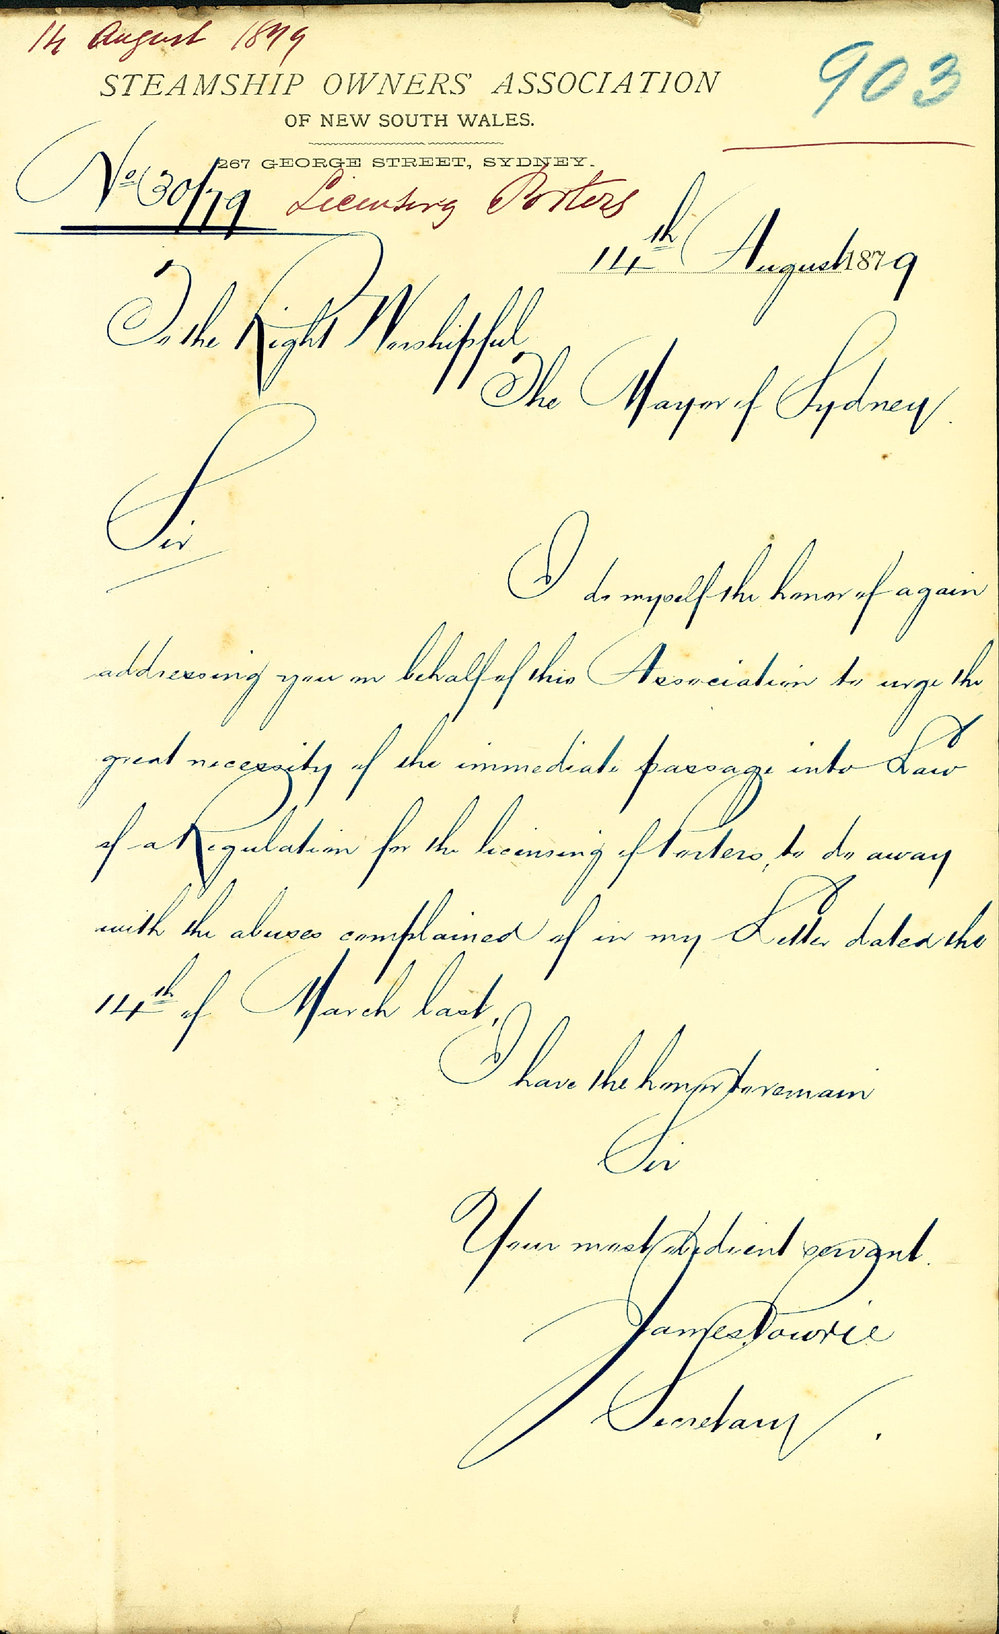 14 August 1879
903
STEAMSHIP OWNERS' ASSOCIATION
OF NEW SOUTH WALES.
267 GEORGE STREET, SYDNEY.
No 30/79 Licensing Porters
14th August 1879
To the Right Worshipful
The Mayor of Sydney.
Sir
I do myself the honor of again
addressing you on behalf of this Association to urge the
great necessity of the immediate passage into Law
of a Regulation for the licensing of Porters, to do away
with the abuses complained of in my Letter dated the
14th of March last.
I have the honor to remain
Sir
Your most obedient servant.
James Powrie
Secretary.